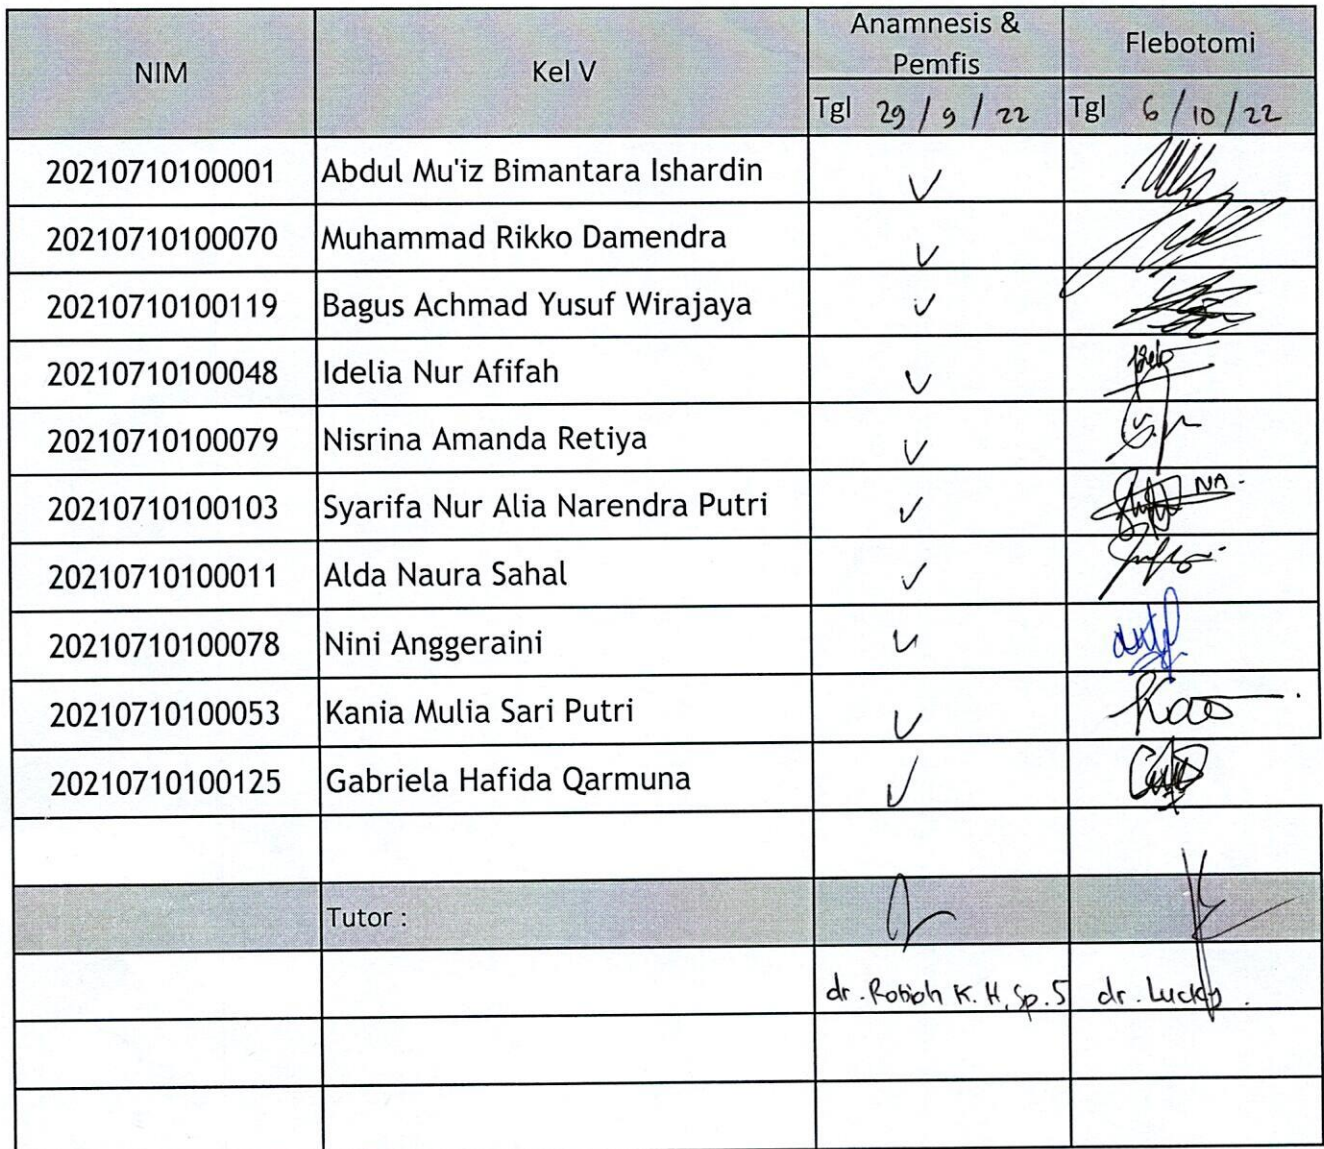 NIM Kel V Anamnesis & Pemfis Flebotomi
Tgl 29 / 9 / 22 Tgl 6 / 10 / 22
20210710100001 Abdul Mu'iz Bimantara Ishardin ✓
20210710100070 Muhammad Rikko Damendra ✓
20210710100119 Bagus Achmad Yusuf Wirajaya ✓
20210710100048 Idelia Nur Afifah ✓
20210710100079 Nisrina Amanda Retiya ✓
20210710100103 Syarifa Nur Alia Narendra Putri ✓ NA.
20210710100011 Alda Naura Sahal ✓
20210710100078 Nini Anggeraini ✓
20210710100053 Kania Mulia Sari Putri ✓
20210710100125 Gabriela Hafida Qarmuna ✓
Tutor :
dr. Robiah K. H, Sp. S dr. Lucky.